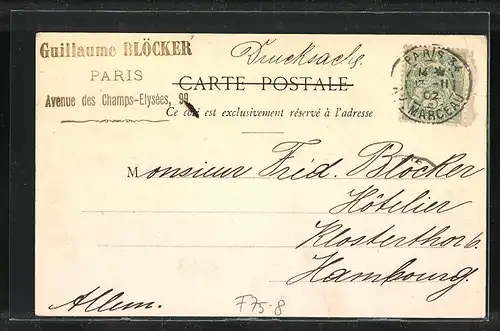 Guillaume BLÖCKER
PARIS
Avenue des Champs-Elysées, 99
Drucksache
CARTE POSTALE
Ce côté est exclusivement réservé à l'adresse
PARIS
02
MARCEAU
Monsieur Fréd. Blöcker
Hôtelier
Klosterthor 6.
Hambourg.
Allem.
F75-8